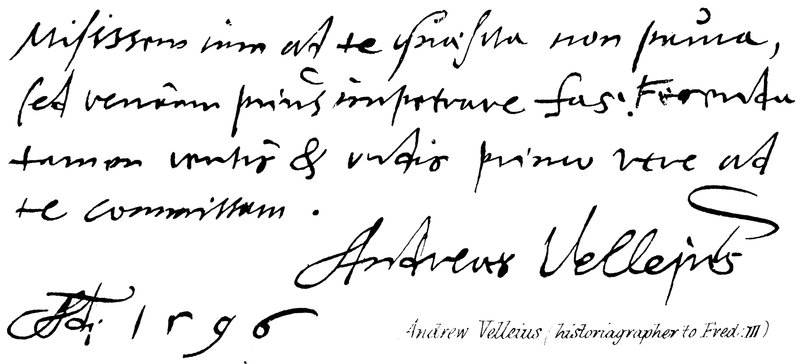 Misissem iam ad te quæsita non pauca,
sed veniam prius impetrare fas: Ferenda
tamen ventis & undis primo vere ad
te committam.
Andreas Vellejus
1596
Andrew Velleius (historiagrapher to Fred: III)